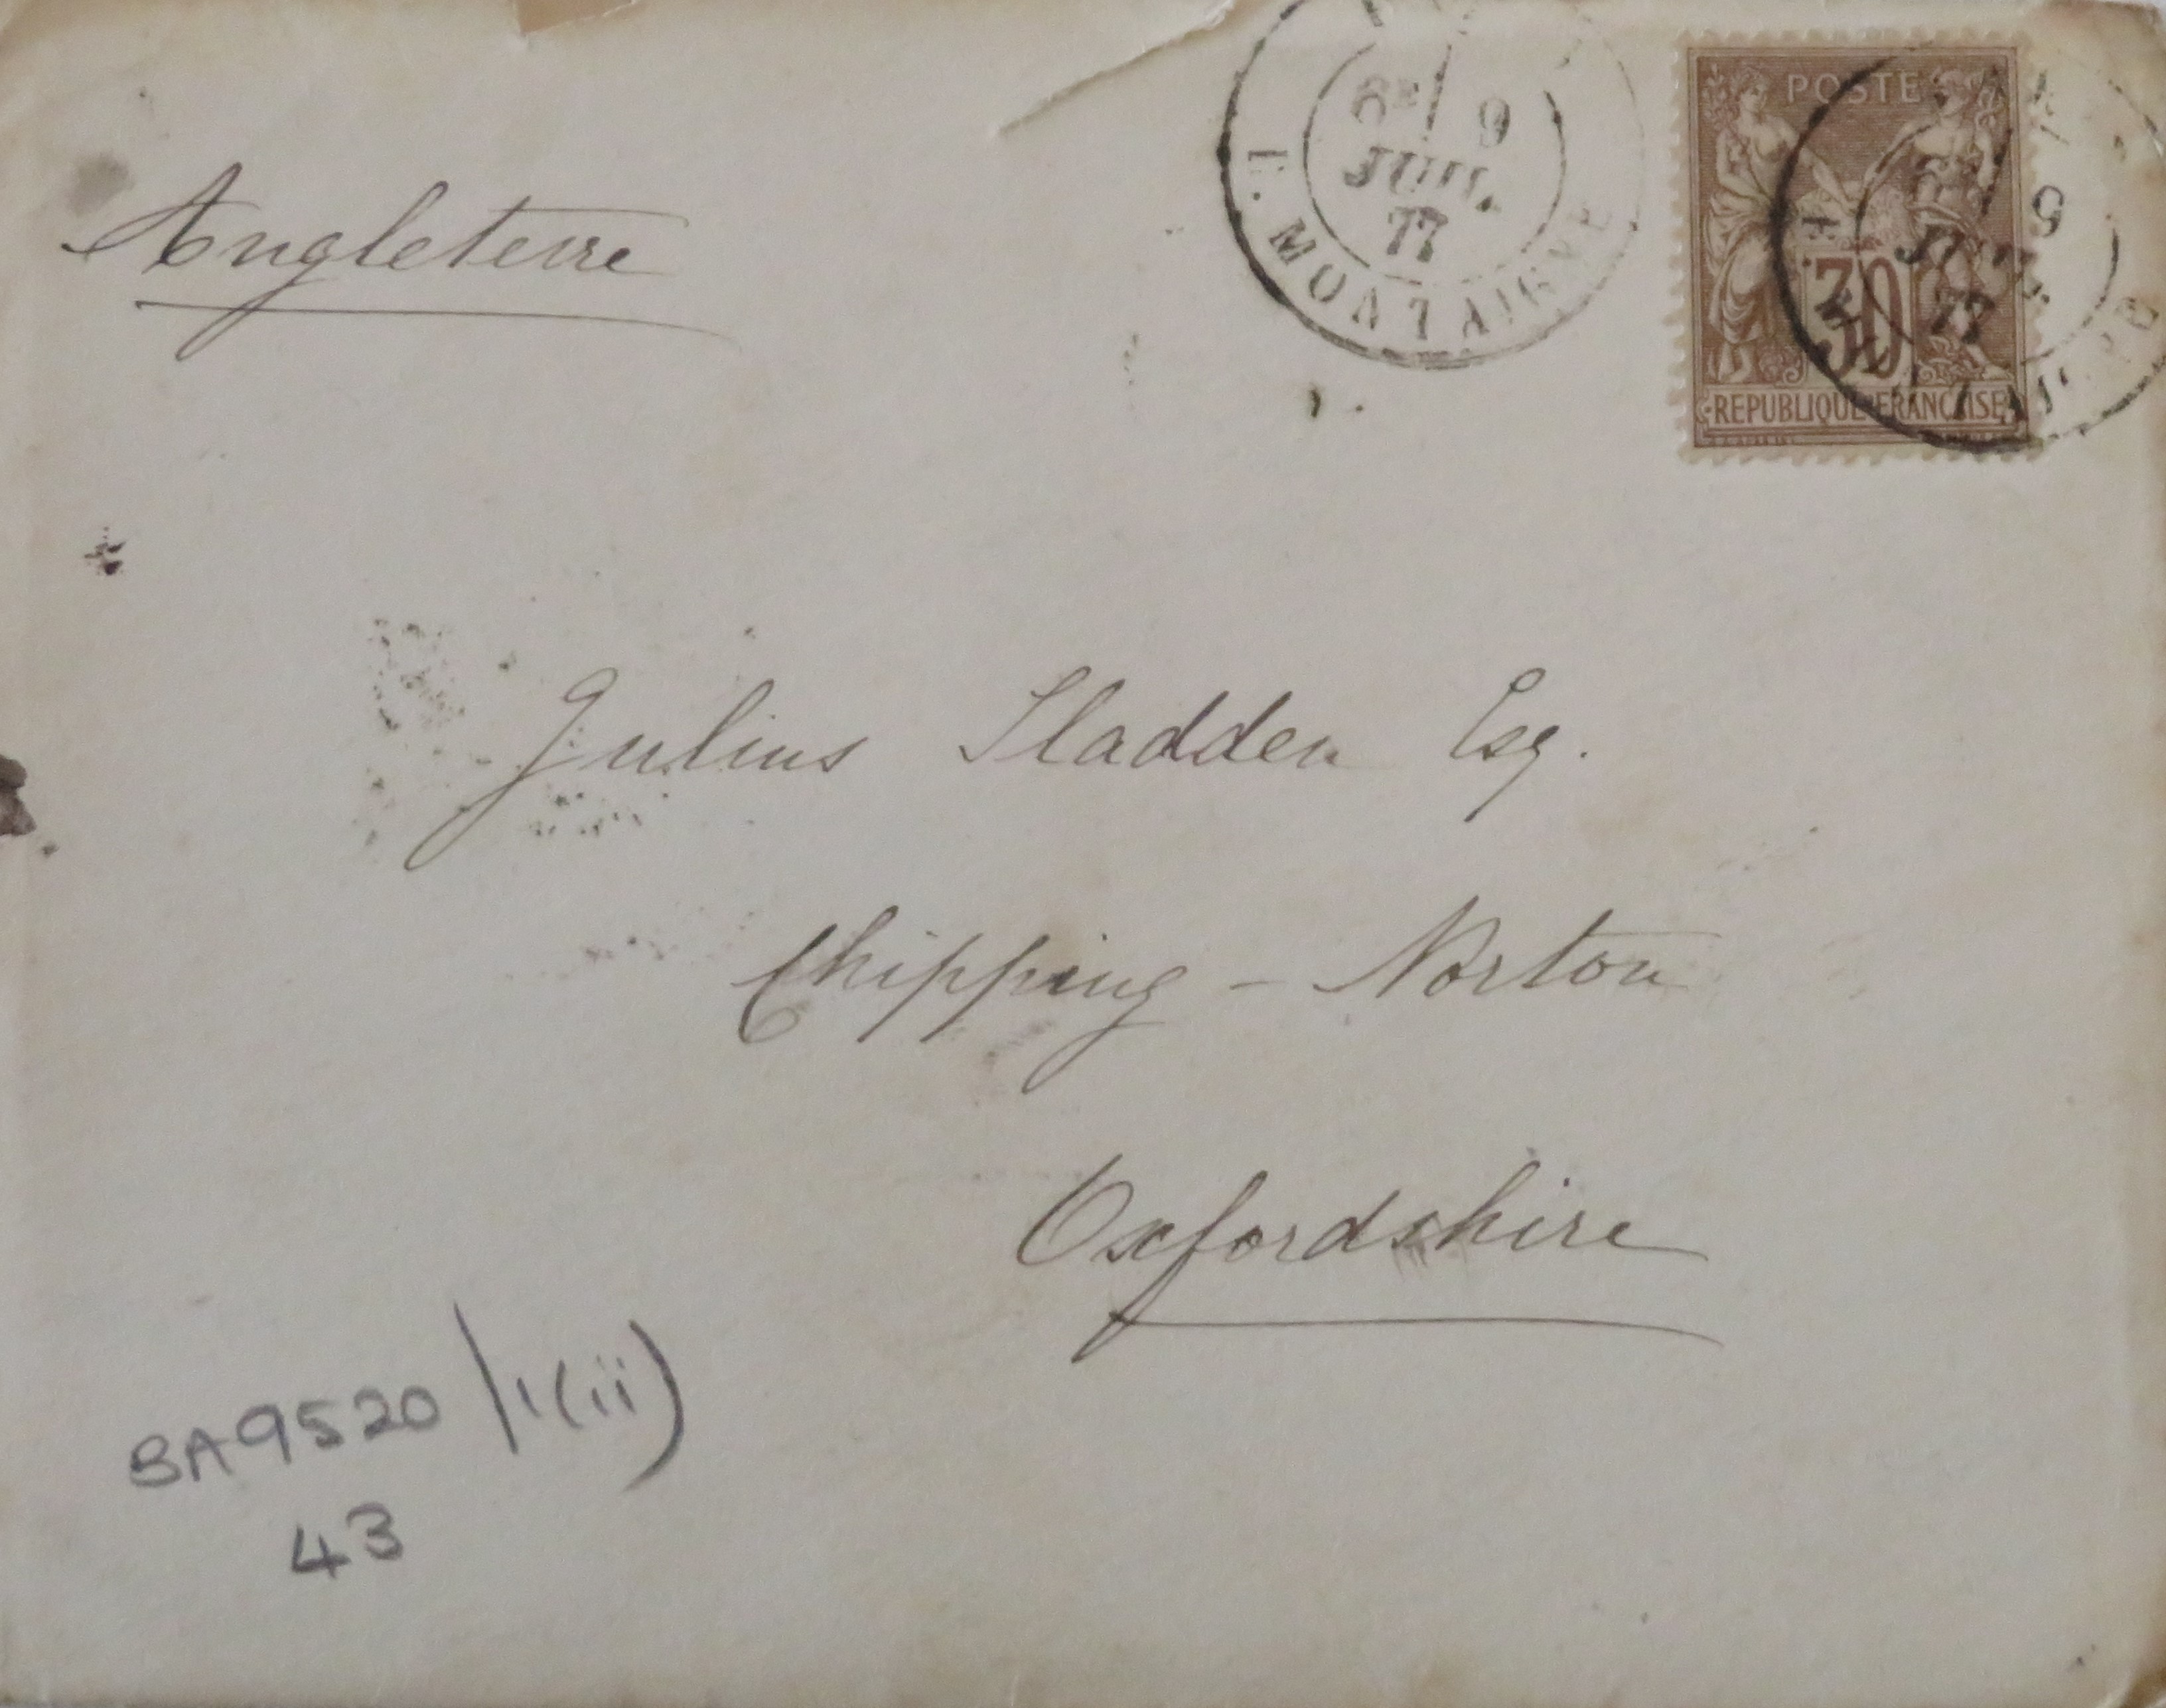 Angleterre
6E 9
JUIL.
77
E. MONTAIGNE
POSTE
30
REPUBLIQUE FRANCAISE
9
JUIL.
77
Julius Sladden Esq.
Chipping - Norton
Oxfordshire
BA9520/1(ii)
43